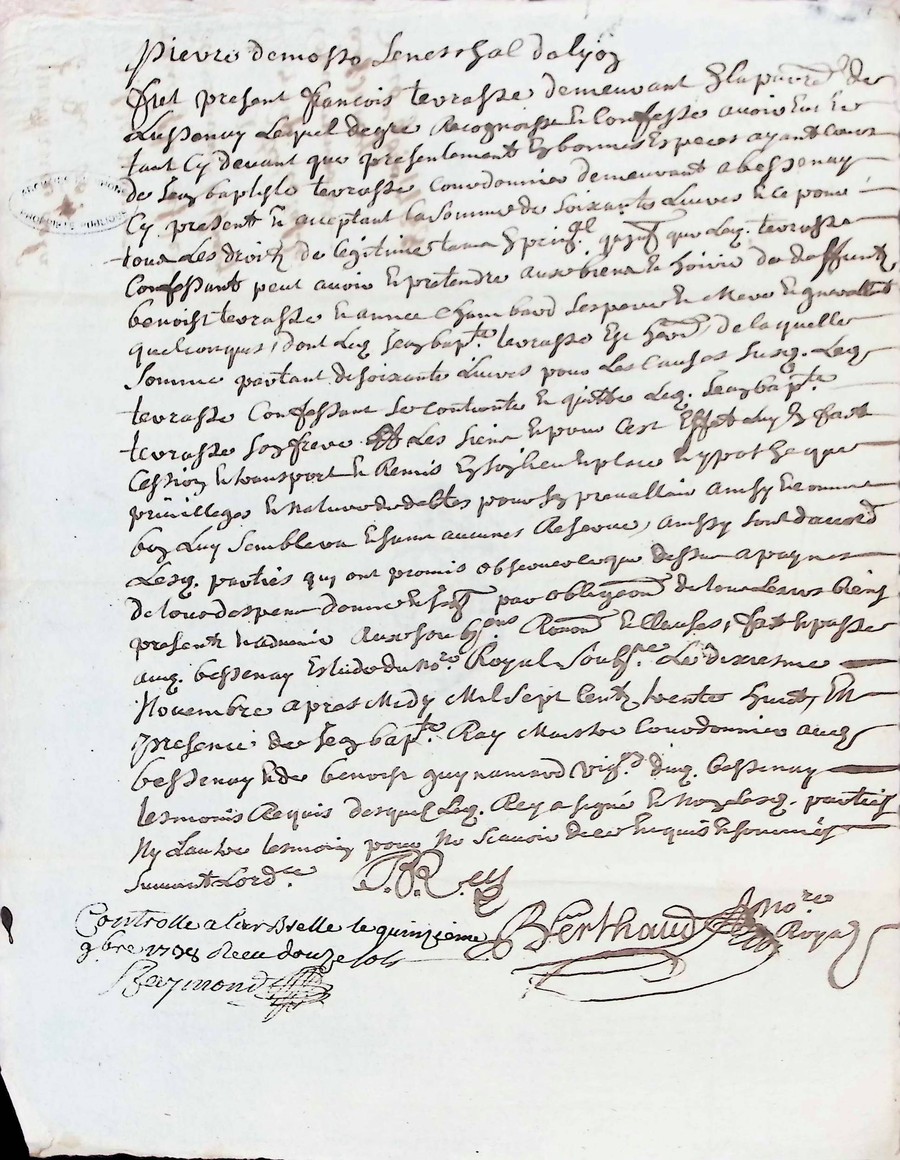 pierre demosso seneschal de lyoz
fut present françois terrasse demeurant en la parr.e de
Lussenay Lequel de gré Recognoist et Confesse avoir eu et
tant Cy devant que presentement en bonnes Especes ayant cours
de Jean baptiste terrasse Courdonnier demeurant a bessenay
Cy present et acceptant la somme de soixante Livres et ce pour
tous Les droits de légitime tant que Led. terrasse
Confessant peut avoir et pretendre aux biens et hoirie de deffunts
benoist terrasse et annee Chambard ses pere et Mere et
quelconques, dont Led. Jean bap.te terrasse est de laquelle
somme partant de soixante Livres pour Les Causes susd. Led.
terrasse Confessant se contente et quitte Led. Jean bap.te
terrasse son frere Les siens et pour Cest Effet luy en fait
Cession et transport et Remis en son lieu et place hypotheque
privilleges et nature de debtes pour sen prevalloir ainsy et comme
bon Luy semblera et sans aucunes Reserve, ainssy sont d'accord
Lesd. parties qui ont promis observer ce que dessus a paynes
de tous despens par obligeaon de tous Leurs biens
presents et advenir Renon et Clauses, fait et passé
aud. bessenay Estude du no.re Royal soub.ne Le dixiesme
Novembre apres Midy Mil Sept Cent trente huict, En
presence de Jean bap.te Ray Maistre Courdonnier aud.
bessenay et de benoist guynamard vig.n dud. bessenay
tesmoins Requis desquels Led. Rey a signé et Non Lesd. parties
Ny L'autre tesmoin pour Ne scavoir de ce Enquis et sommés
suivant Lord.ce J.B. Rey
Berthaud no.re Royal
Controlle a Larbrelle le quinzieme
9bre 1738 Receu douze sols
Reymond